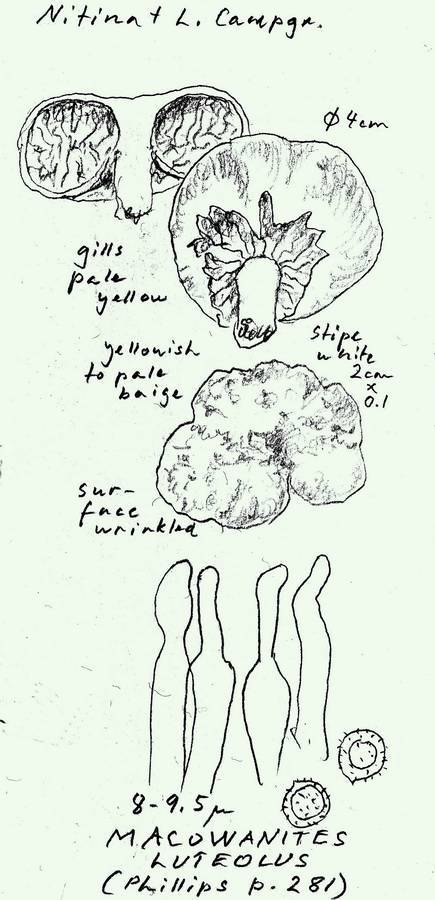 Nitinat L. Campgr.
Ø 4cm
gills
pale
yellow
stipe
white
2cm
x
0.1
yellowish
to pale
baige
sur-
face
wrinkled
8-9.5µ
MACOWANITES
LUTEOLUS
(Phillips p. 281)